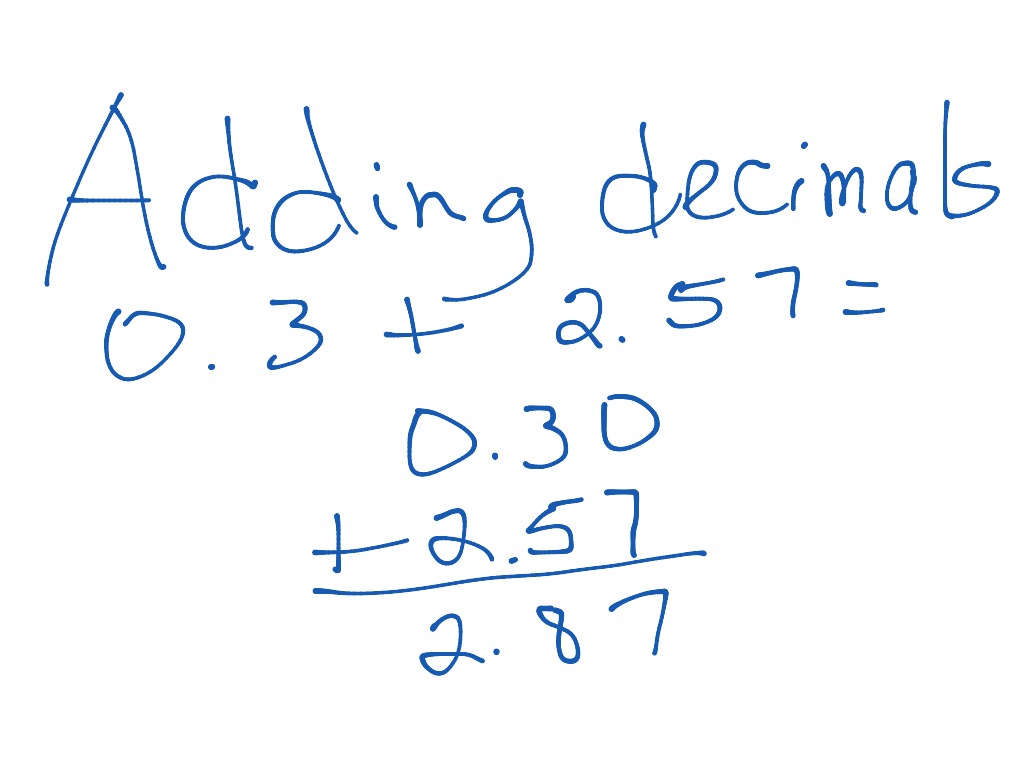 Adding decimals
0.3 + 2.57 =
0.30
+ 2.57
2.87